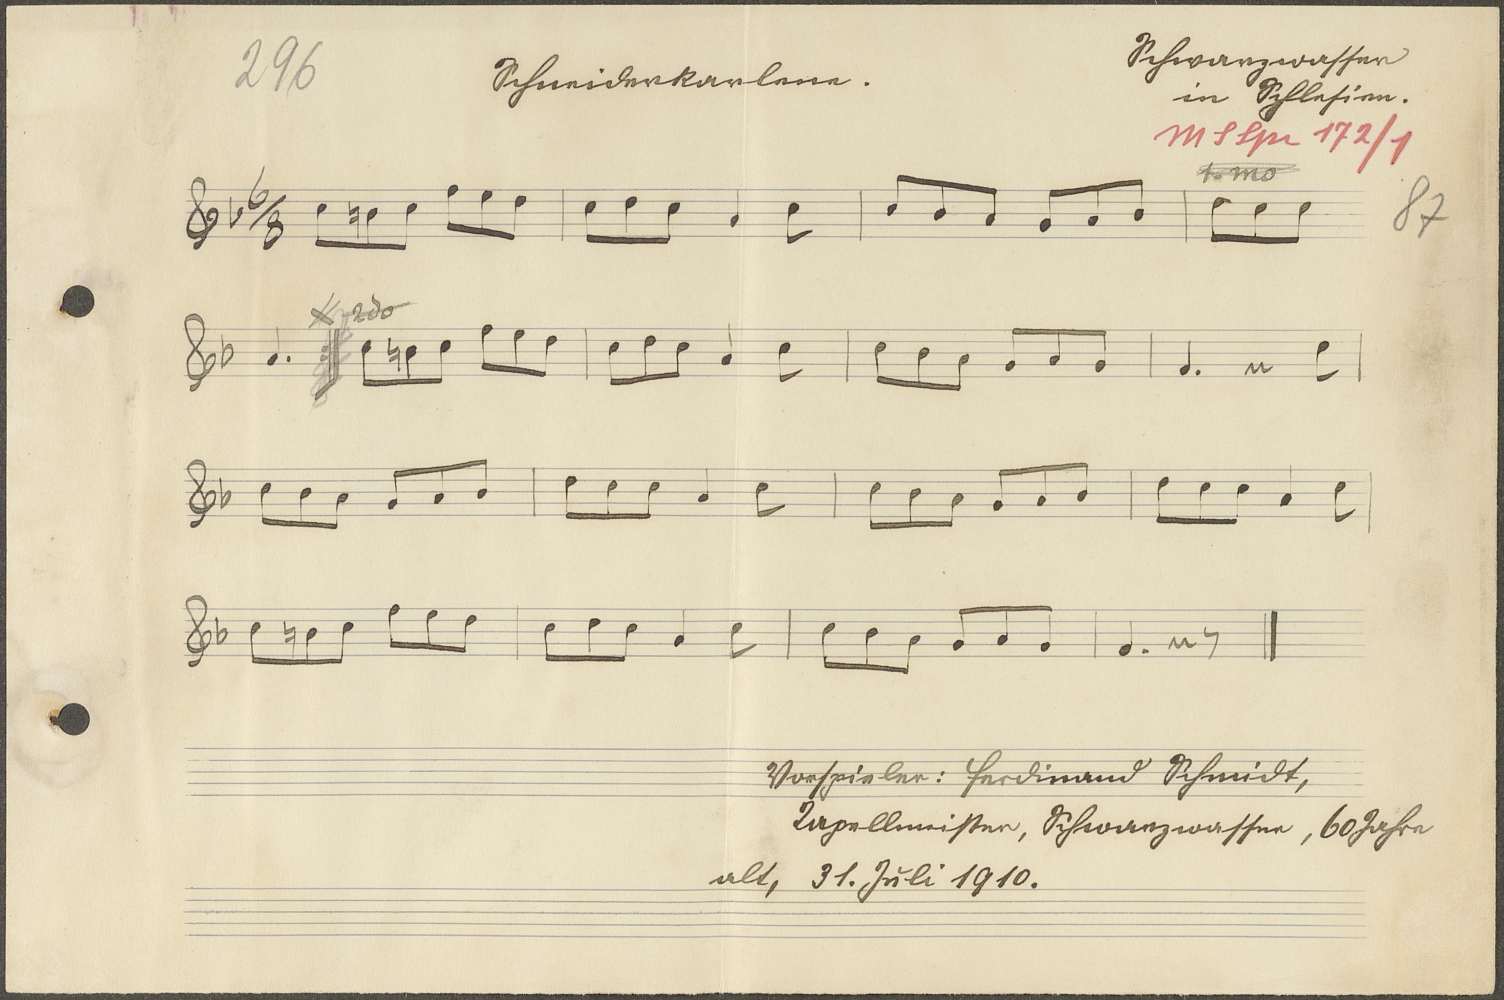 296
Schneiderkarlene.
Schwarzwasser
in Schlesien.
172/1
1. mo
6/8
87
2do
Vorspieler: Ferdinand Schmidt,
Kapellmeister, Schwarzwasser, 60 Jahre
alt, 31. Juli 1910.